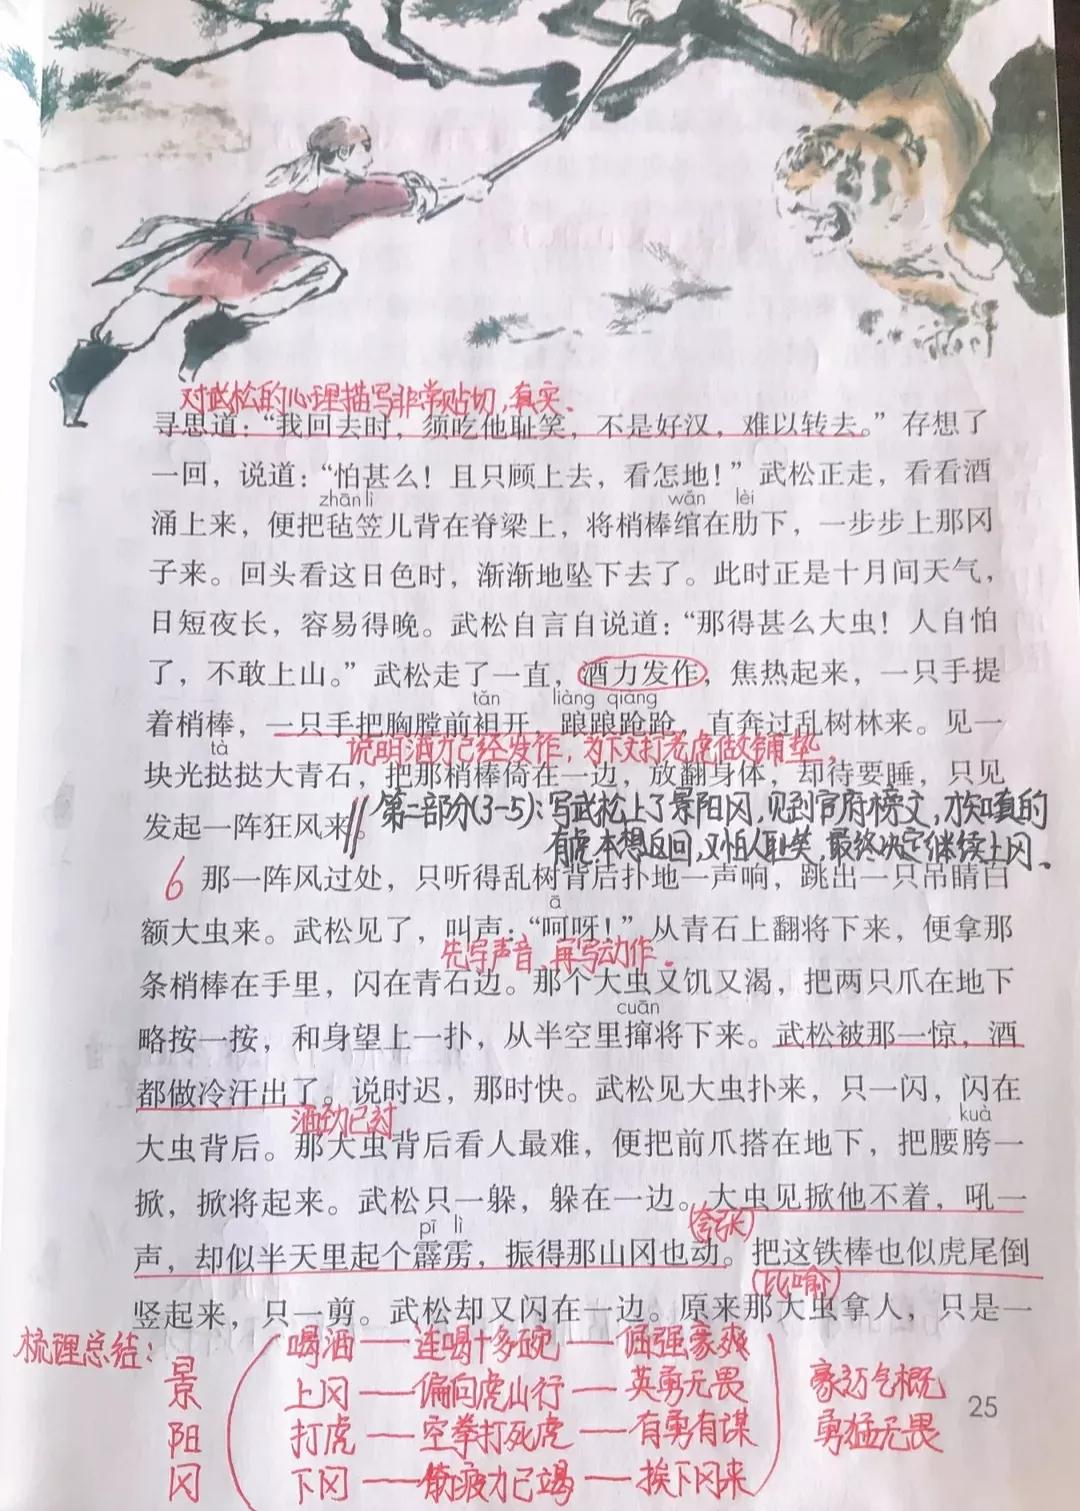 对武松的心理描写非常贴切,真实.
寻思道：“我回去时，须吃他耻笑，不是好汉，难以转去。”存想了
一回，说道：“怕甚么！且只顾上去，看怎地！”武松正走，看看酒
zhān lì wǎn lèi
涌上来，便把毡笠儿背在脊梁上，将梢棒绾在肋下，一步步上那冈
子来。回头看这日色时，渐渐地坠下去了。此时正是十月间天气，
日短夜长，容易得晚。武松自言自说道：“那得甚么大虫！人自怕
了，不敢上山。”武松走了一直，酒力发作，焦热起来，一只手提
tǎn liàng qiàng
着梢棒，一只手把胸膛前袒开，踉踉跄跄，直奔过乱树林来。见一
说明酒力已经发作,为下文打老虎做铺垫.
tà
块光挞挞大青石，把那梢棒倚在一边，放翻身体，却待要睡，只见
发起一阵狂风来。
第二部分(3-5):写武松上了景阳冈,见到官府榜文,才知真的
有虎,本想返回,又怕人耻笑,最终决定继续上冈.
6 那一阵风过处，只听得乱树背后扑地一声响，跳出一只吊睛白
ā
额大虫来。武松见了，叫声：“呵呀！”从青石上翻将下来，便拿那
先写声音,再写动作.
条梢棒在手里，闪在青石边。那个大虫又饥又渴，把两只爪在地下
cuān
略按一按，和身望上一扑，从半空里撺将下来。武松被那一惊，酒
都做冷汗出了。说时迟，那时快。武松见大虫扑来，只一闪，闪在
酒劲已过
kuà
大虫背后。那大虫背后看人最难，便把前爪搭在地下，把腰胯一
掀，掀将起来。武松只一躲，躲在一边。大虫见掀他不着，吼一
pī lì (夸张)
声，却似半天里起个霹雳，振得那山冈也动。把这铁棒也似虎尾倒
(比喻)
竖起来，只一剪。武松却又闪在一边。原来那大虫拿人，只是一
梳理总结:
景阳冈
喝酒——连喝十多碗——倔强豪爽
上冈——偏向虎山行——英勇无畏
打虎——空拳打死虎——有勇有谋
下冈——筋疲力已竭——挨下冈来
豪迈气概
勇猛无畏
25